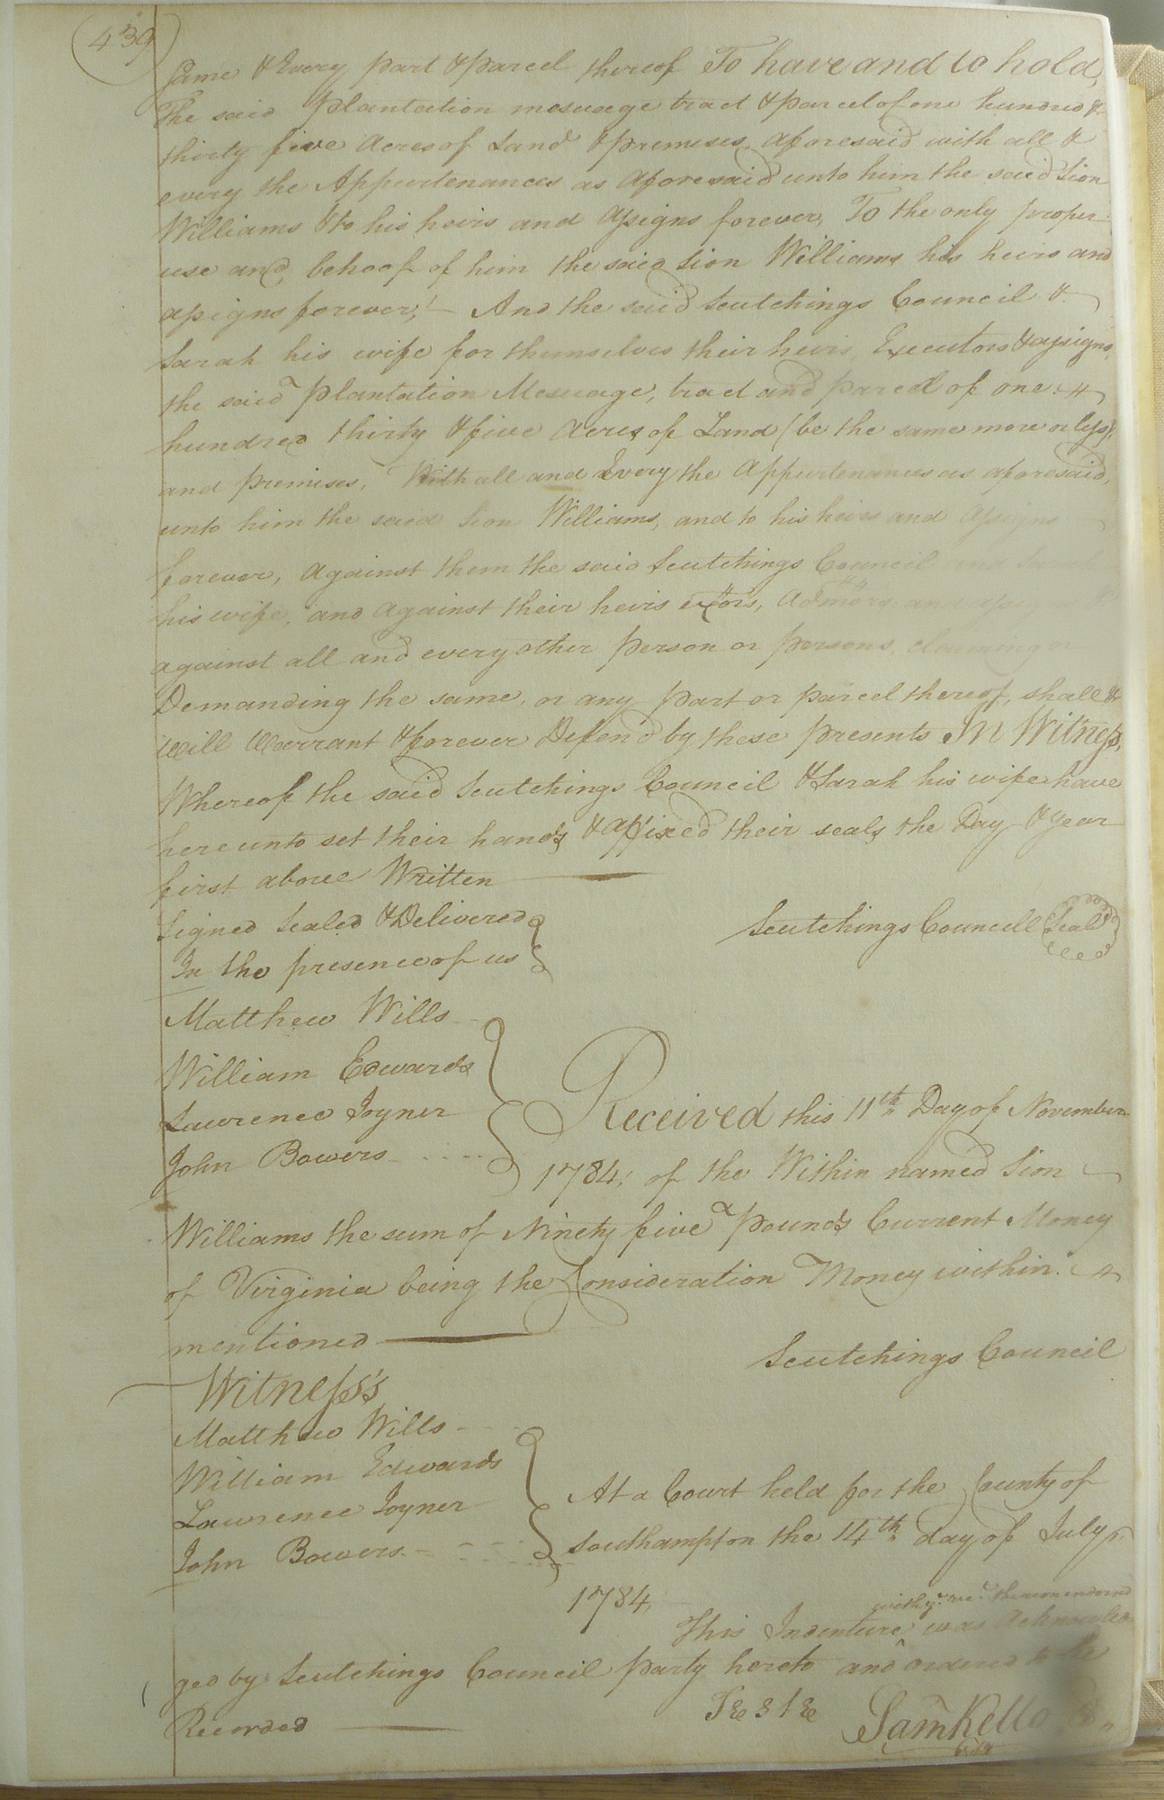 439
Same & Every part & parcel thereof To have and to hold,
The said plantation mesuage tract & parcel of one hundred &
thirty five Acres of Land & premises aforesaid with all &
every the Appurtenances as aforesaid unto him the said Sion
Williams & to his heirs and Assigns forever, To the only proper
use and behoof of him the said Sion Williams his heirs and
assigns forever; And the said Scutchings Council &
Sarah his wife for themselves their heirs Executors & assigns
the said plantation Mesuage, tract and parcel of one
hundred thirty & five Acres of Land (be the same more or less)
and premises, With all and Every the Appurtenances as aforesaid,
unto him the said Sion Williams, and to his heirs and Assigns
forever, Against them the said Scutchings Council and
his wife, and against their heirs exors, Admors and
against all and every other person or persons, claiming or
Demanding the same, or any part or parcel thereof, shall &
will Warrant & forever Defend by these presents In Witness,
Whereof the said Scutchings Council & Sarah his wife have
hereunto set their hands & affixed their seals the Day & year
first above Written
Signed Sealed & Delivered
In the presence of us
Scutchings Councill Seal
Matthew Wills
William Edwards
Lawrence Joyner
John Bowers
Received this 11th Day of November
1784; of the Within named Sion
Williams the sum of Ninety five pounds Current Money
of Virginia being the Consideration Money within
mentioned
Scutchings Council
Witness's
Matthew Wills
William Edwards
Lawrence Joyner
John Bowers
At a Court held for the County of
Southampton the 14th day of July
1784,
This Indenture was Acknowled
ged by Scutchings Council party hereto and ordered to be
Recorded
Teste
Saml Kello